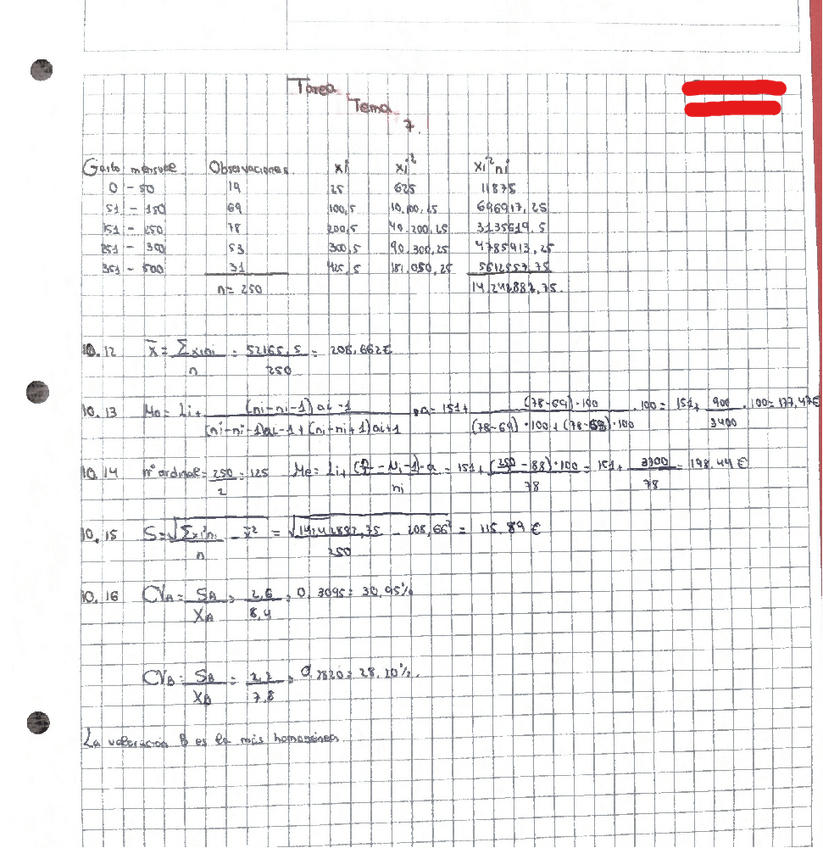 Tarea
Tema
7.
Gasto mensual Observaciones xi xi² xi²ni
0 - 50 19 25 625 11875
51 - 150 69 100,5 10.100,25 696917,25
151 - 250 78 200,5 40.200,25 3135619,5
251 - 350 53 300,5 90.300,25 4785913,25
351 - 500 31 425,5 181.050,25 5612557,75
n= 250 14.242882,75.
10.12 x̄ = Σxini / n = 52165,5 / 250 = 208,662€
10.13 Mo = Li + (ni-ni-1) ai-1 / (ni-ni-1)ai-1 + (ni-ni+1)ai+1 · a = 151 + (78-69)·100 / (78-69)·100 + (78-53)·100 · 100 = 151 + 900 / 3400 · 100 = 177,47€
10.14 nº ordinal = 250 / 2 = 125 Me = Li + (n/2 - Ni-1)·a / ni = 151 + (250/2 - 88)·100 / 78 = 151 + 3700 / 78 = 198.44 €
10.15 S = √ Σxi²ni / n - x̄² = √ 14.242882,75 / 250 - 208,66² = 115.89 €
10.16 CVA = SA / XA = 2,6 / 8,4 = 0,3095 = 30,95%
CVB = SB / XB = 2,2 / 7,8 = 0,2820 = 28,20%.
La valoración B es la más homogénea